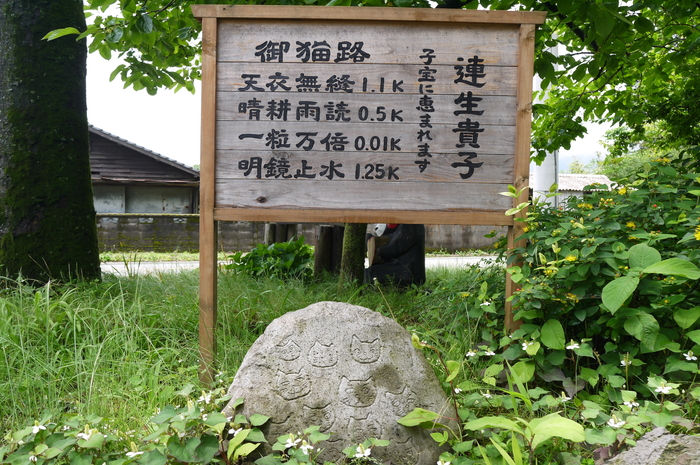 連生貴子
子宝に恵まれます
御猫路
天衣無縫 1.1K
晴耕雨読 0.5K
一粒万倍 0.01K
明鏡止水 1.25K